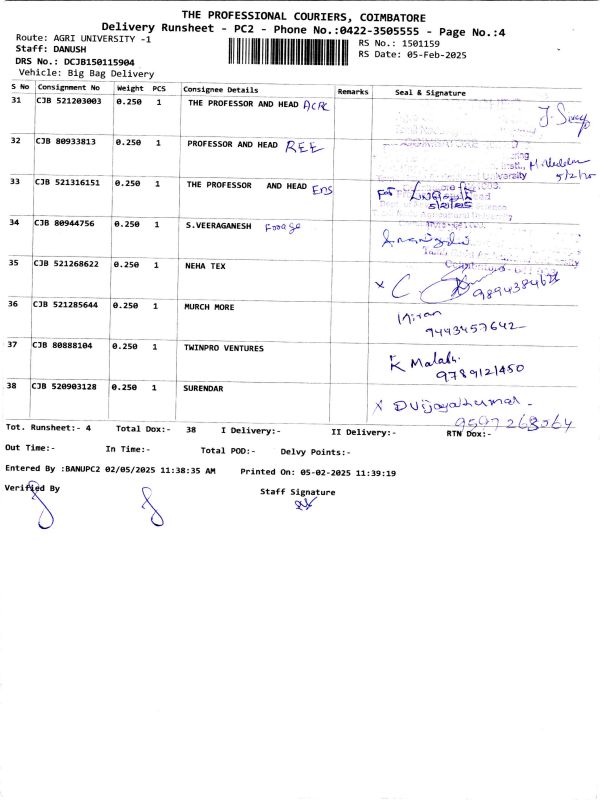 THE PROFESSIONAL COURIERS, COIMBATORE
Delivery Runsheet - PC2 - Phone No.:0422-3505555 - Page No.:4
Route: AGRI UNIVERSITY -1
RS No.: 1501159
Staff: DANUSH
RS Date: 05-Feb-2025
DRS No.: DCJB150115904
Vehicle: Big Bag Delivery
S No Consignment No Weight PCS Consignee Details Remarks Seal & Signature
31 CJB 521203003 0.250 1 THE PROFESSOR AND HEAD ACRC
32 CJB 80933813 0.250 1 PROFESSOR AND HEAD REE
5/2/25
33 CJB 521316151 0.250 1 THE PROFESSOR AND HEAD Ens
5/2/25
34 CJB 80944756 0.250 1 S.VEERAGANESH Forage
35 CJB 521268622 0.250 1 NEHA TEX
36 CJB 521285644 0.250 1 MURCH MORE
9443457642
37 CJB 80888104 0.250 1 TWINPRO VENTURES
9789121450
38 CJB 520903128 0.250 1 SURENDAR
Tot. Runsheet:- 4 Total Dox:- 38 I Delivery:- II Delivery:- RTN Dox:-
Out Time:- In Time:- Total POD:- Delvy Points:-
Entered By :BANUPC2 02/05/2025 11:38:35 AM Printed On: 05-02-2025 11:39:19
Verified By
Staff Signature